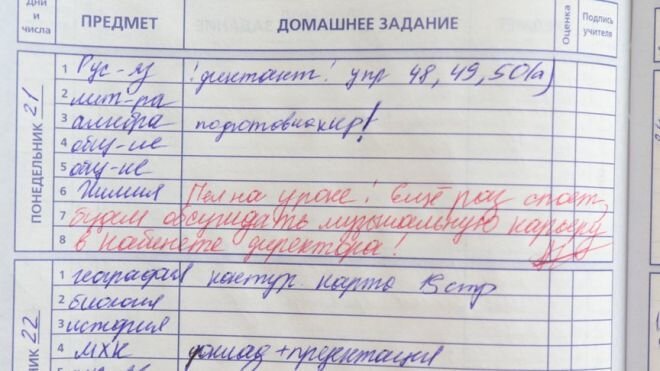 Дни и числа ПРЕДМЕТ ДОМАШНЕЕ ЗАДАНИЕ Оценка Подпись учителя
ПОНЕДЕЛЬНИК 21
1 Рус-яз !диктант! упр 48, 49, 50(а)
2 лит-ра
3 алгебра
4 общ-ие
5 общ-ие
6 Химия Пел на уроке! Ещё раз споет,
7 будем обсуждать музыкальную карьеру
8 в кабинете директора!
НИК 22
1 география контур. карта
2 биология
3 история
4 МХК доклад + презентация